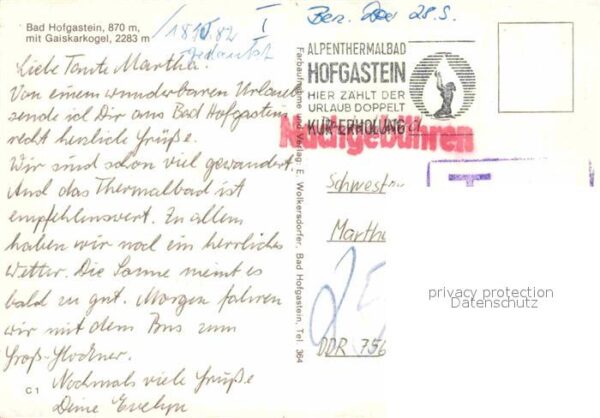 Bad Hofgastein, 870 m,
mit Gaiskarkogel, 2283 m
I
Ber. 28.5.
Liebe Tante Martha!
Von einem wunderbaren Urlaub
sende ich Dir aus Bad Hofgastein
recht herzliche Grüße.
Wir sind schon viel gewandert.
Und das Thermalbad ist
empfehlenswert. Zu allem
haben wir noch ein herrliches
Wetter. Die Sonne meint es
bald zu gut. Morgen fahren
wir mit dem Bus zum
Groß-Glockner.
Nochmals viele Grüße
Deine Evelyn
C 1
Farbaufnahme und Verlag: E. Wolkersdorfer, Bad Hofgastein, Tel. 364
ALPENTHERMALBAD
HOFGASTEIN
HIER ZÄHLT DER
URLAUB DOPPELT
KUR-ERHOLUNG
Nachgebühren
T
Schwest
Marthe
DDR 756
privacy protection
Datenschutz